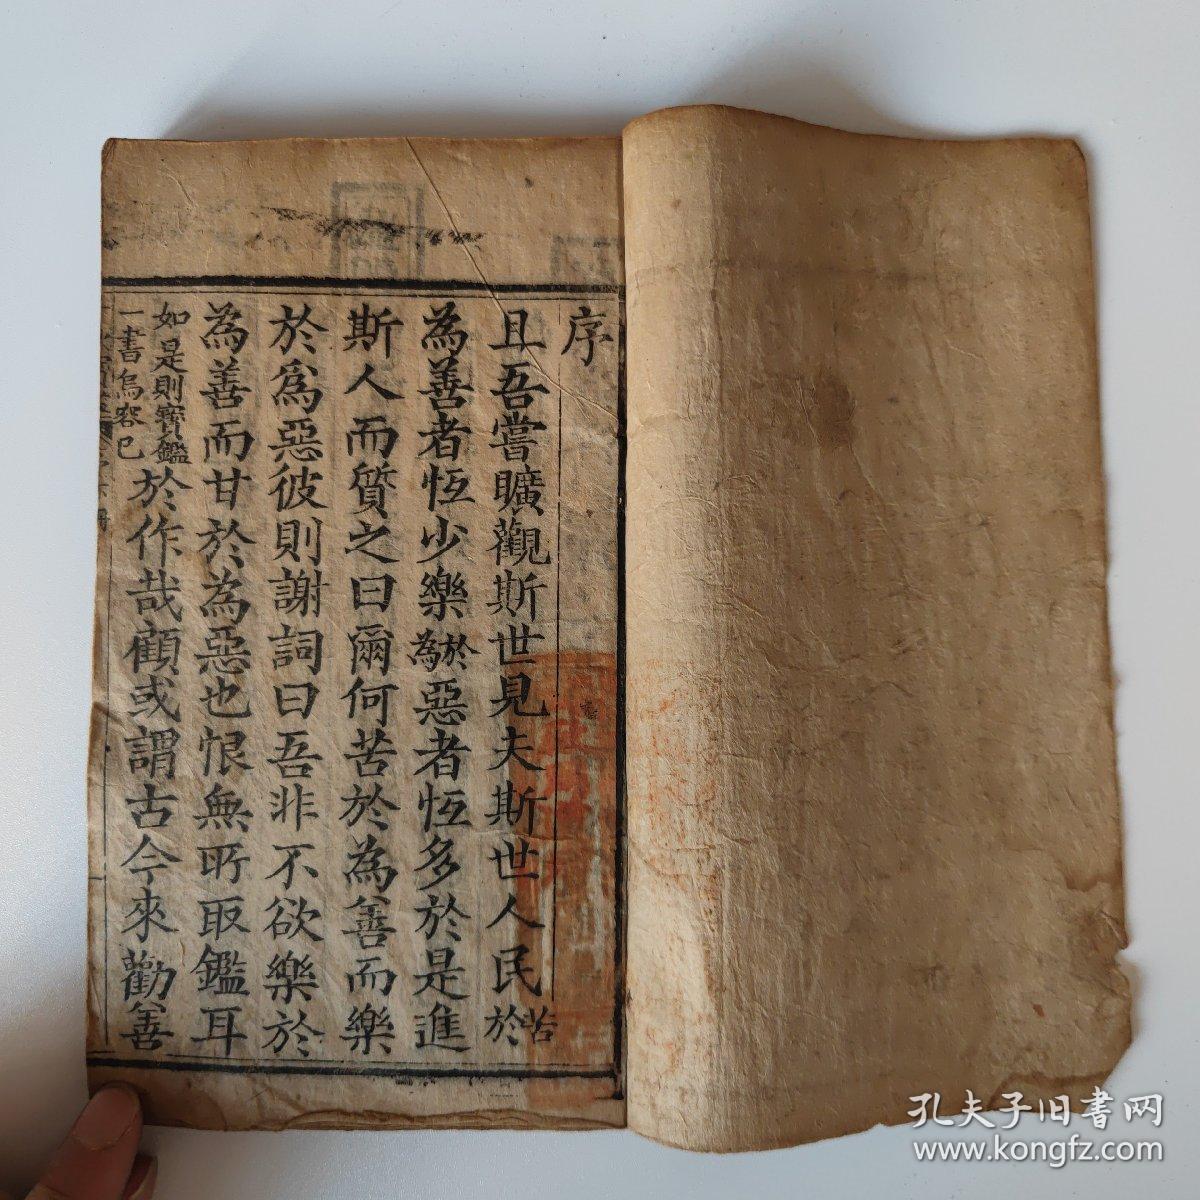 序
且吾嘗曠觀斯世見夫斯世人民苦於
為善者恆少樂於為惡者恆多於是進
斯人而質之曰爾何苦於為善而樂
於爲惡彼則謝詞曰吾非不欲樂於
為善而甘於為惡也恨無所取鑑耳
如是則寶鑑一書烏容已於作哉顧或謂古今來勸善
孔夫子旧书网
www.kongfz.com